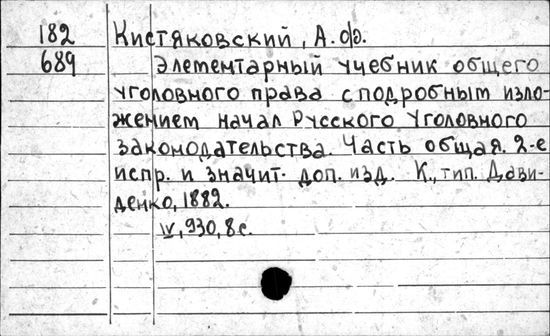 182 Кистяковский, А.Ф.
689 Элементарный учебник общего
уголовного права с подробным изло-
жением начал Русского Уголовного
законодательства. Часть общая. 2-е
испр. и значит. доп. изд. К., тип. Дави-
денко, 1882.
IV, 930, 8 с.